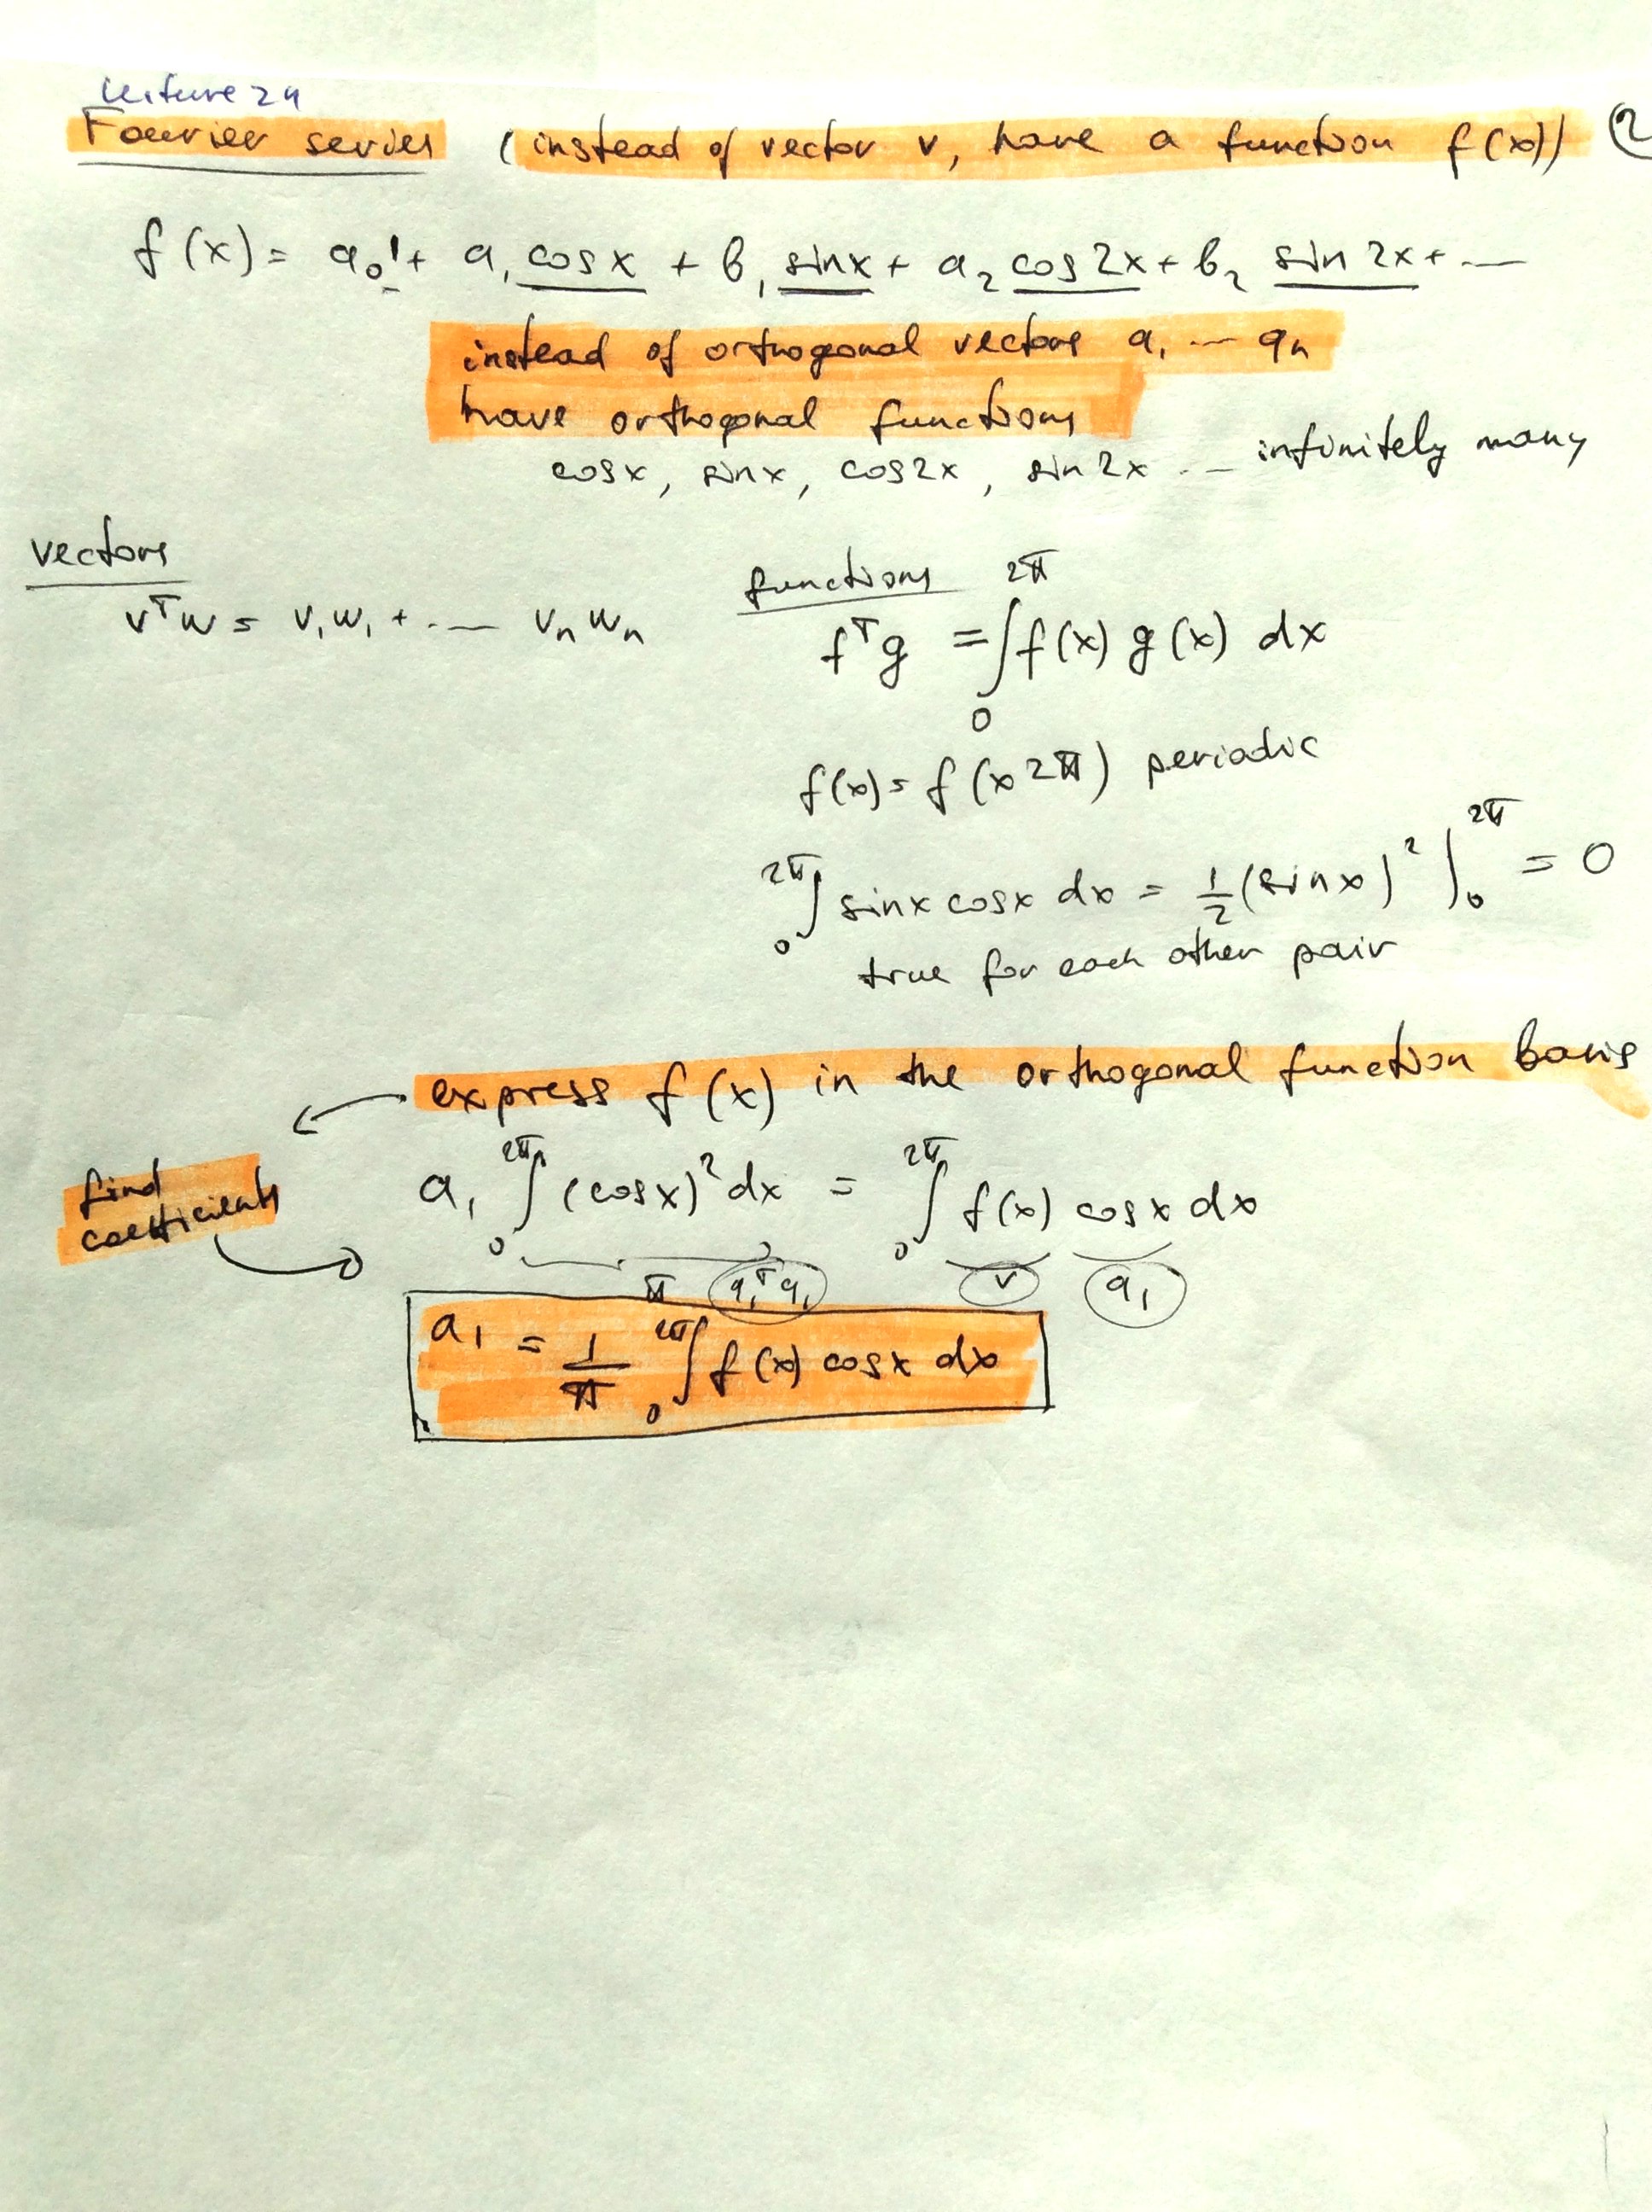 Lecture 24
Fourier series (instead of vector v, have a function f(x)) 2
f(x) = a₀1 + a₁ cosx + b₁ sinx + a₂ cos2x + b₂ sin 2x + ...
instead of orthogonal vectors q₁ ... qₙ
have orthogonal functions
cosx, sinx, cos2x, sin2x ... infinitely many
vectors
vᵀw = v₁w₁ + ... vₙwₙ
functions
fᵀg = ∫₀^2π f(x) g(x) dx
f(x) = f(x 2π) periodic
∫₀^2π sinx cosx dx = 1/2 (sinx)² |₀^2π = 0
true for each other pair
express f(x) in the orthogonal function basis
find
coefficients
a₁ ∫₀^2π (cosx)² dx = ∫₀^2π f(x) cosx dx
π q₁ᵀq₁ v q₁
a₁ = 1/π ∫₀^2π f(x) cosx dx